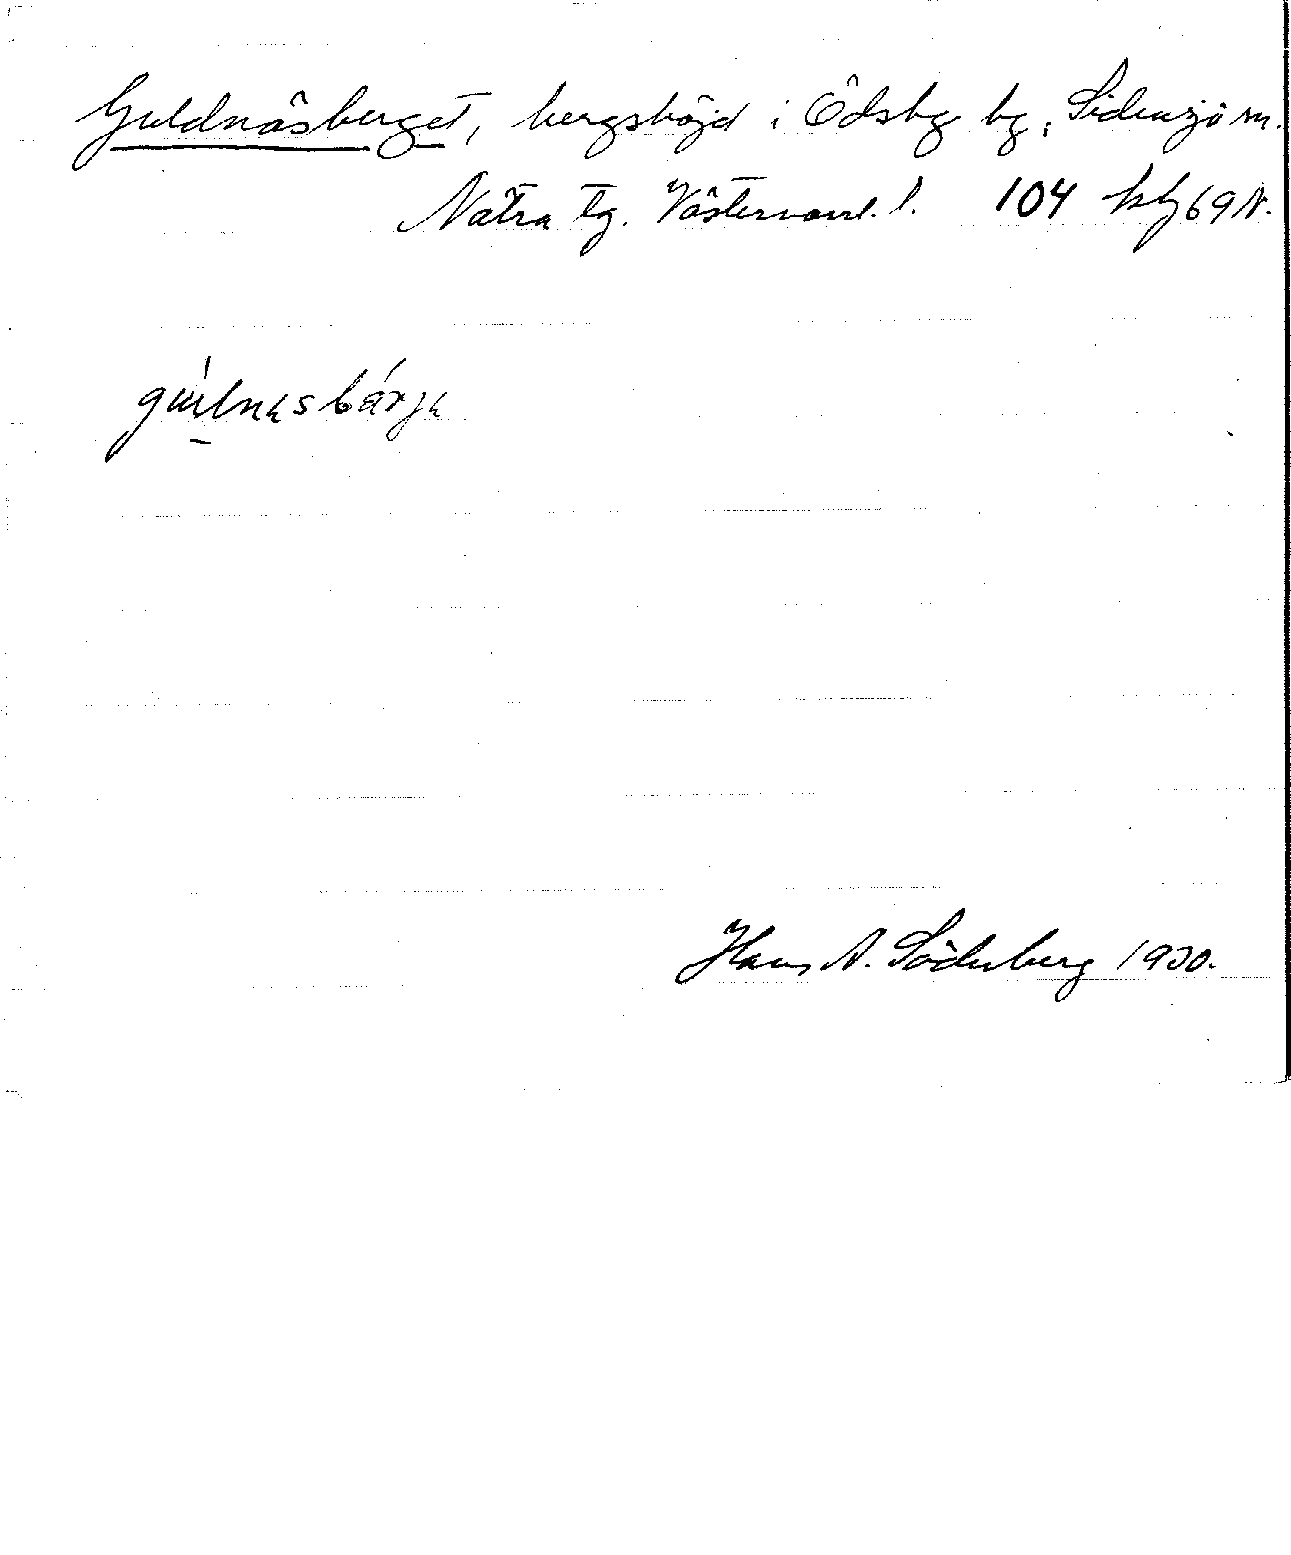 Guldnäsberget, bergshöjd i Ödsby by, Sidensjö sn.
Nätra tg. Västernorrl. l. 104 kbl 69 N.
Hans A. Söderberg 1930.